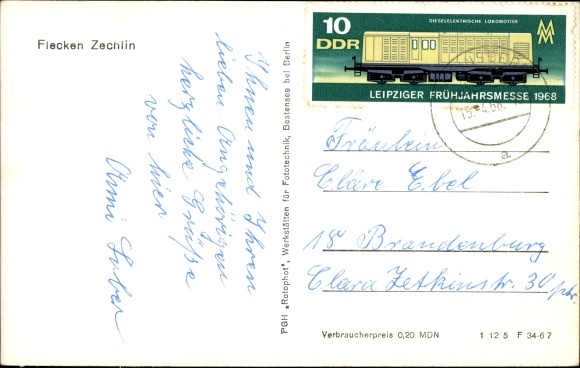 Flecken Zechlin
Ihnen und Ihren
lieben Angehörigen
herzliche Grüße
von hier
PGH „Rotophot", Werkstätten für Fototechnik, Bestensee bei Berlin
10
DDR
DIESELELEKTRISCHE LOKOMOTIVE
MM
LEIPZIGER FRÜHJAHRSMESSE 1968
a
Fräulein
Cläre Ebel
18 Brandenburg
Clara Zetkinstr. 30 ptr.
Verbraucherpreis 0,20 MDN
1 12 5 F 34-67